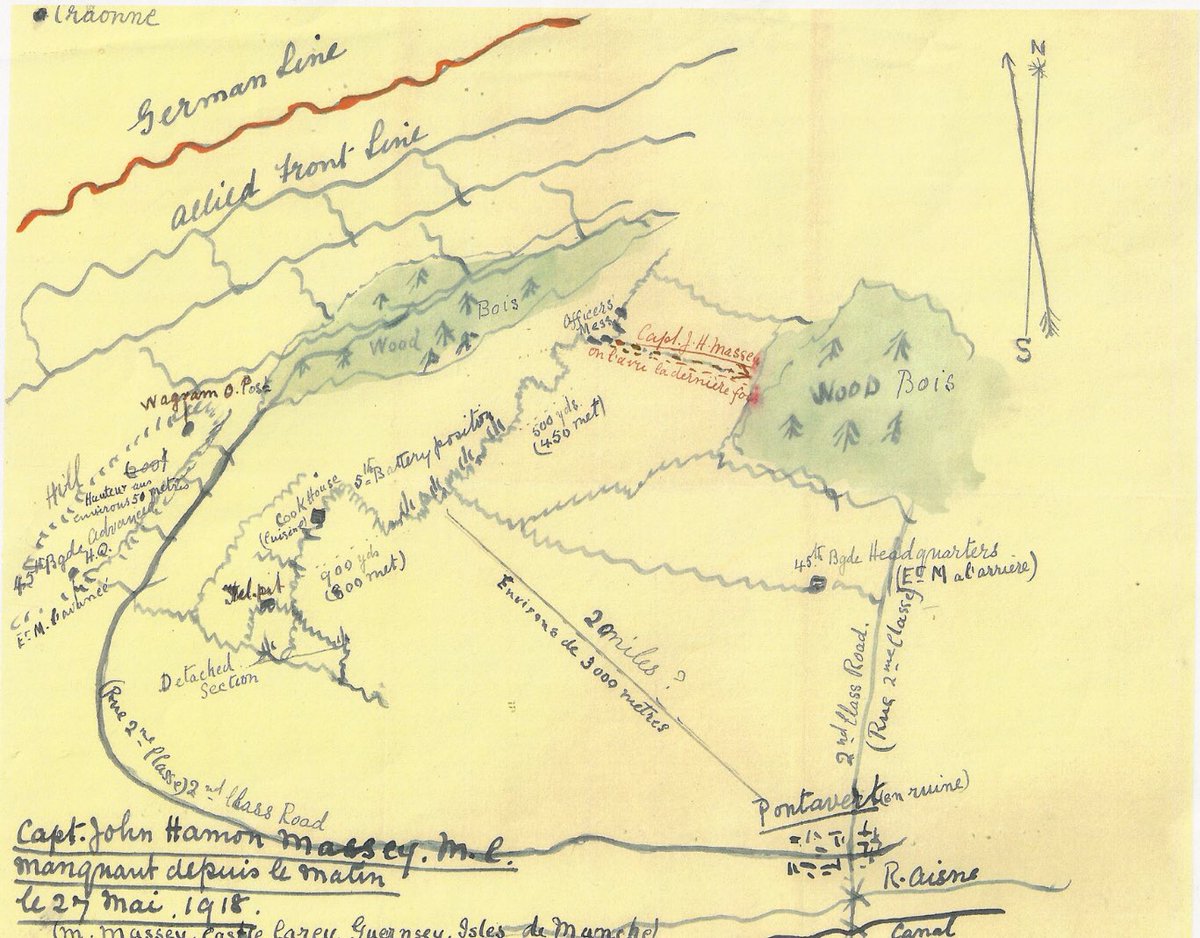 Craonne
German Line
Allied Front Line
N
S
Bois
Wood
Officers'
Mess
Capt. J. H. Massey
on l'a vu la dernière fois
Wood Bois
Wagram O. Post
Hill
Hauteur aux
environs 50 metres
45th Bgde Advanced
H.Q.
Et. M. l'avancée
5th Battery position
500 yds
(450 met)
Cook House
(Cuisine)
900 yds
(800 met)
Tel. pit
Detached
Section
45th Bgde Headquarters
(Et M a l'arrière)
2 miles?
Environs de 3000 metres
2nd Class Road.
(Rue 2me Classe)
(Rue 2me Classe) 2nd Class Road
Pontavert (en ruine)
R. Aisne
Canal
Capt. John Hamon Massey. M.C.
manquant depuis le matin
le 27 Mai. 1918.
(M. Massey, Castle Carey, Guernsey, Isles de Manche)